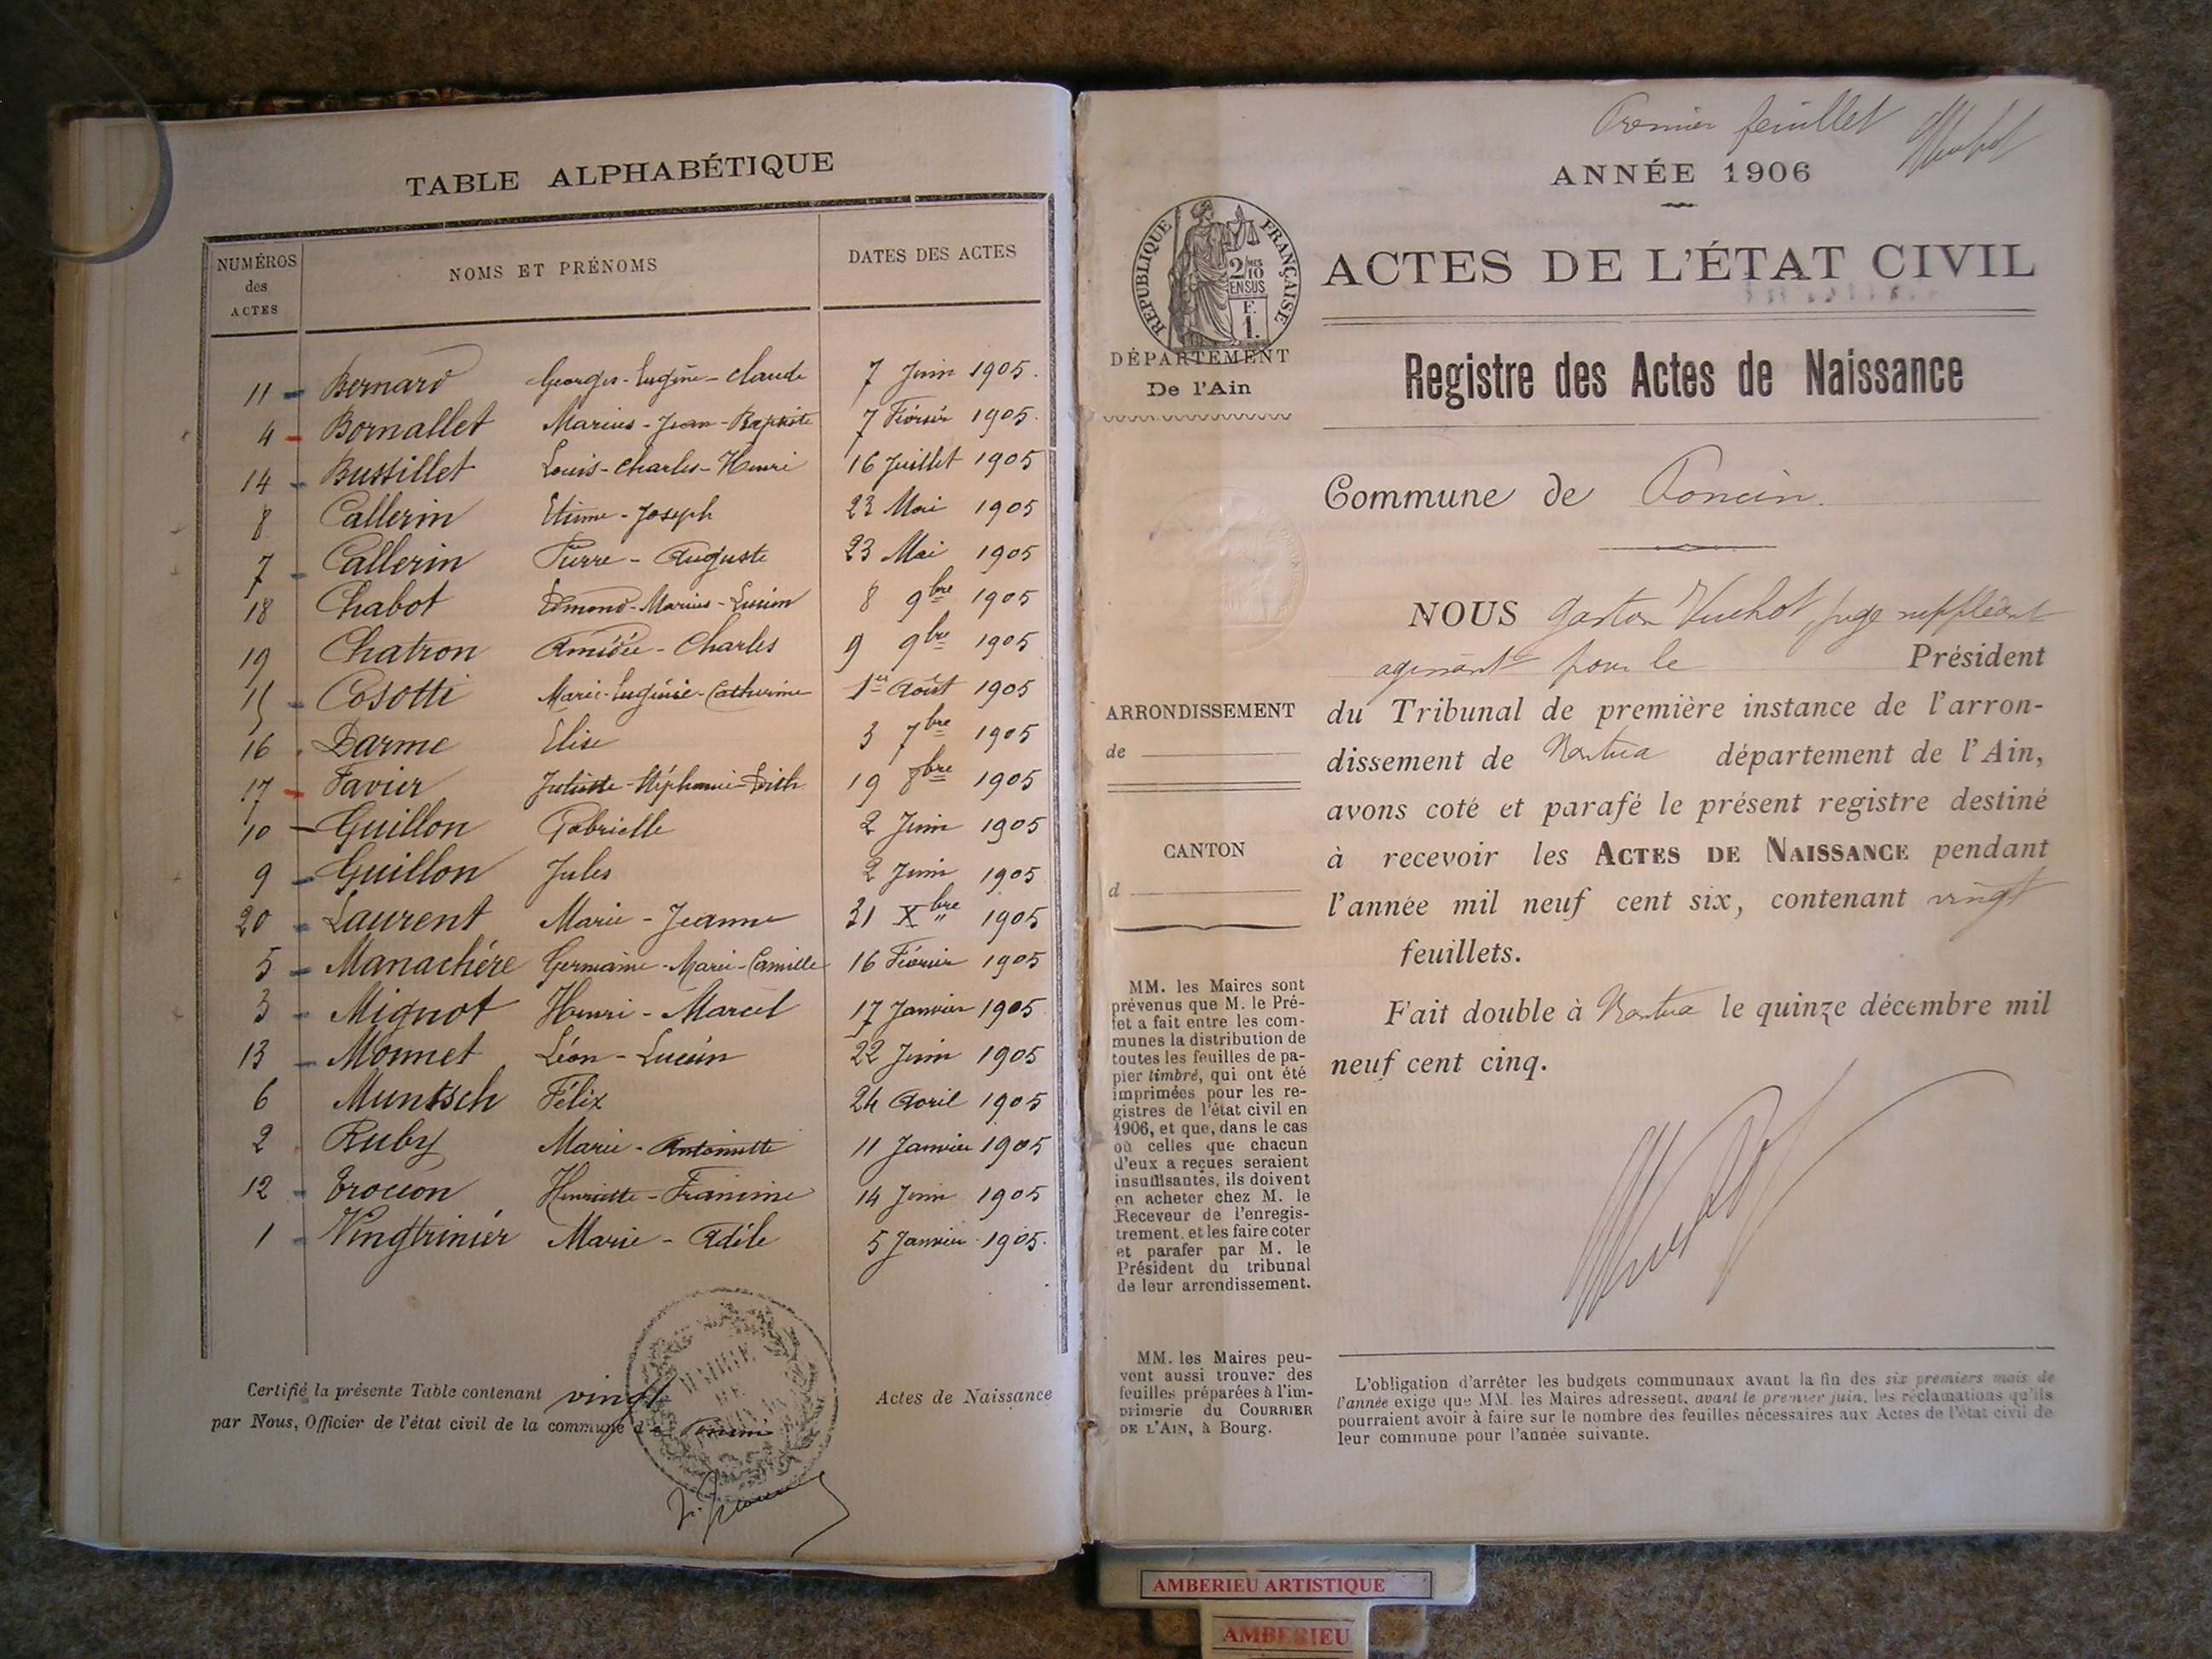 TABLE ALPHABÉTIQUE
NUMÉROS des ACTES NOMS ET PRÉNOMS DATES DES ACTES
11 - Bernard Georges-Eugène-Claude 7 Juin 1905.
4 - Bornallet Marius-Jean-Baptiste 7 Février 1905.
14 - Bussillet Louis-Charles-Henri 16 Juillet 1905
8 Callerin Etienne-Joseph 23 Mai 1905
7 - Callerin Pierre-Auguste 23 Mai 1905
18 Chabot Edmond-Marius-Lucien 8 9bre 1905
19 Chatron Amédée-Charles 9 9bre 1905
15 - Cosotti Marie-Eugénie-Catherine 1er Août 1905
16 - Darme Elise 3 7bre 1905
17 - Favier Juliette-Stéphanie-Edith 19 8bre 1905
10 - Guillon Gabrielle 2 Juin 1905
9 - Guillon Jules 2 Juin 1905
20 - Laurent Marie-Jeanne 31 Xbre 1905
5 - Manachére Germaine-Marie-Camille 16 Février 1905
3 - Mignot Henri-Marcel 17 Janvier 1905
13 - Monnet Léon-Lucien 22 Juin 1905
6 Muntsch Félix 24 Avril 1905
2 Ruby Marie-Antoinette 11 Janvier 1905
12 - Troccon Henriette-Francine 14 Juin 1905
1 - Vingtrinier Marie-Adèle 5 Janvier 1905.
Certifié la présente Table contenant vingt Actes de Naissance
par Nous, Officier de l'état civil de la commune d e Poncin
MAIRIE DE PONCIN
Premier feuillet
ANNÉE 1906
RÉPUBLIQUE FRANÇAISE
2/10mes EN SUS
F. 1.
ACTES DE L'ÉTAT CIVIL
DÉPARTEMENT
De l'Ain
Registre des Actes de Naissance
Commune de Poncin.
NOUS Gaston Vuchot, juge suppléant
agissant pour le Président
ARRONDISSEMENT
de
du Tribunal de première instance de l'arron-
dissement de Nantua département de l'Ain,
avons coté et parafé le présent registre destiné
CANTON
d
à recevoir les ACTES DE NAISSANCE pendant
l'année mil neuf cent six, contenant vingt
feuillets.
Fait double à Nantua le quinze décembre mil
neuf cent cinq.
MM. les Maires sont
prévenus que M. le Pré-
fet a fait entre les com-
munes la distribution de
toutes les feuilles de pa-
pier timbré, qui ont été
imprimées pour les re-
gistres de l'état civil en
1906, et que, dans le cas
où celles que chacun
d'eux a reçues seraient
insuffisantes, ils doivent
en acheter chez M. le
Receveur de l'enregis-
trement et les faire coter
et parafer par M. le
Président du tribunal
de leur arrondissement.
MM. les Maires peu-
vent aussi trouver des
feuilles préparées à l'im-
primerie du COURRIER
DE L'AIN, à Bourg.
L'obligation d'arrêter les budgets communaux avant la fin des six premiers mois de
l'année exige que MM. les Maires adressent, avant le premier juin, les réclamations qu'ils
pourraient avoir à faire sur le nombre des feuilles nécessaires aux Actes de l'état civil de
leur commune pour l'année suivante.
AMBERIEU ARTISTIQUE
AMBERIEU